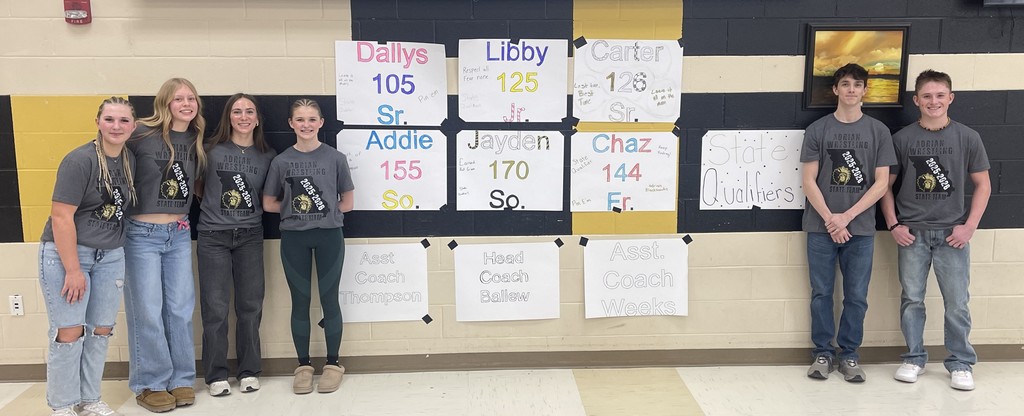 Dallys
105
Sr.
Libby
125
Jr.
Carter
126
Sr.
Addie
155
So.
Jayden
170
So.
Chaz
144
Fr.
State
Qualifiers
Asst
Coach
Thompson
Head
Coach
Ballew
Asst.
Coach
Weeks
ADRIAN WRESTLING
2025-2026
STATE TEAM
FIRE